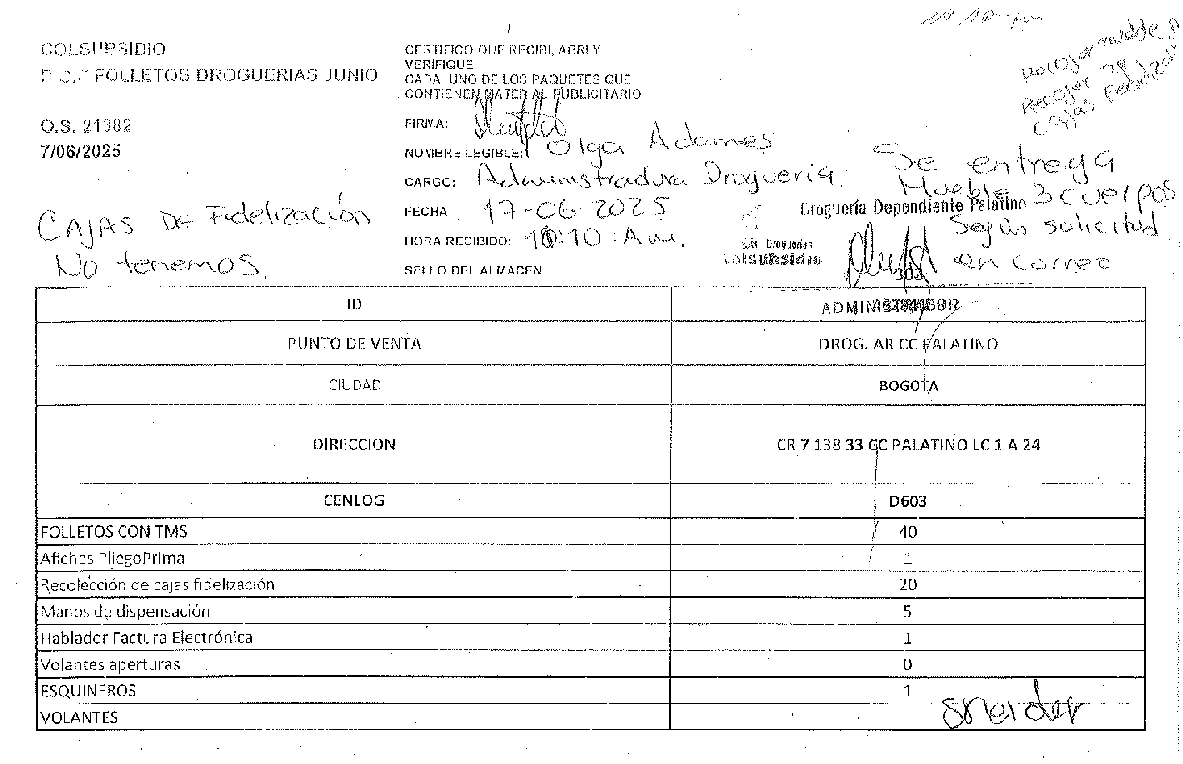 COLSUBSIDIO
FOLLETOS DROGUERIAS JUNIO
O.S. 21382
7/06/2025
CAJAS DE Fidelización
No tenemos.
CERTIFICO QUE RECIBI, ABRI Y
VERIFIQUE
CADA UNO DE LOS PAQUETES QUE
CONTIENEN MATERIAL PUBLICITARIO
FIRMA:
NOMBRE LEGIBLE: Olga Adames
CARGO: Administradora Droguería.
FECHA 17-06-2025
HORA RECIBIDO: 10:10 A.m.
SELLO DEL ALMACEN
Recoger mueble
Recoger
cajas
Se entrega
Mueble 3 cuerpos
Según solicitud
en correo
Droguería Dependiente Palatino
Colsubsidio
302
ID
ADMINISTRADOR
PUNTO DE VENTA DROG. AR CC PALATINO
CIUDAD BOGOTA
DIRECCION CR 7 138 33 CC PALATINO LC 1 A 24
CENLOG D603
FOLLETOS CON TMS 40
Afiches PliegoPrima
Recolección de cajas fidelización 20
Manos de dispensación 5
Hablador Factura Electrónica 1
Volantes aperturas 0
ESQUINEROS 1
VOLANTES
Sneider